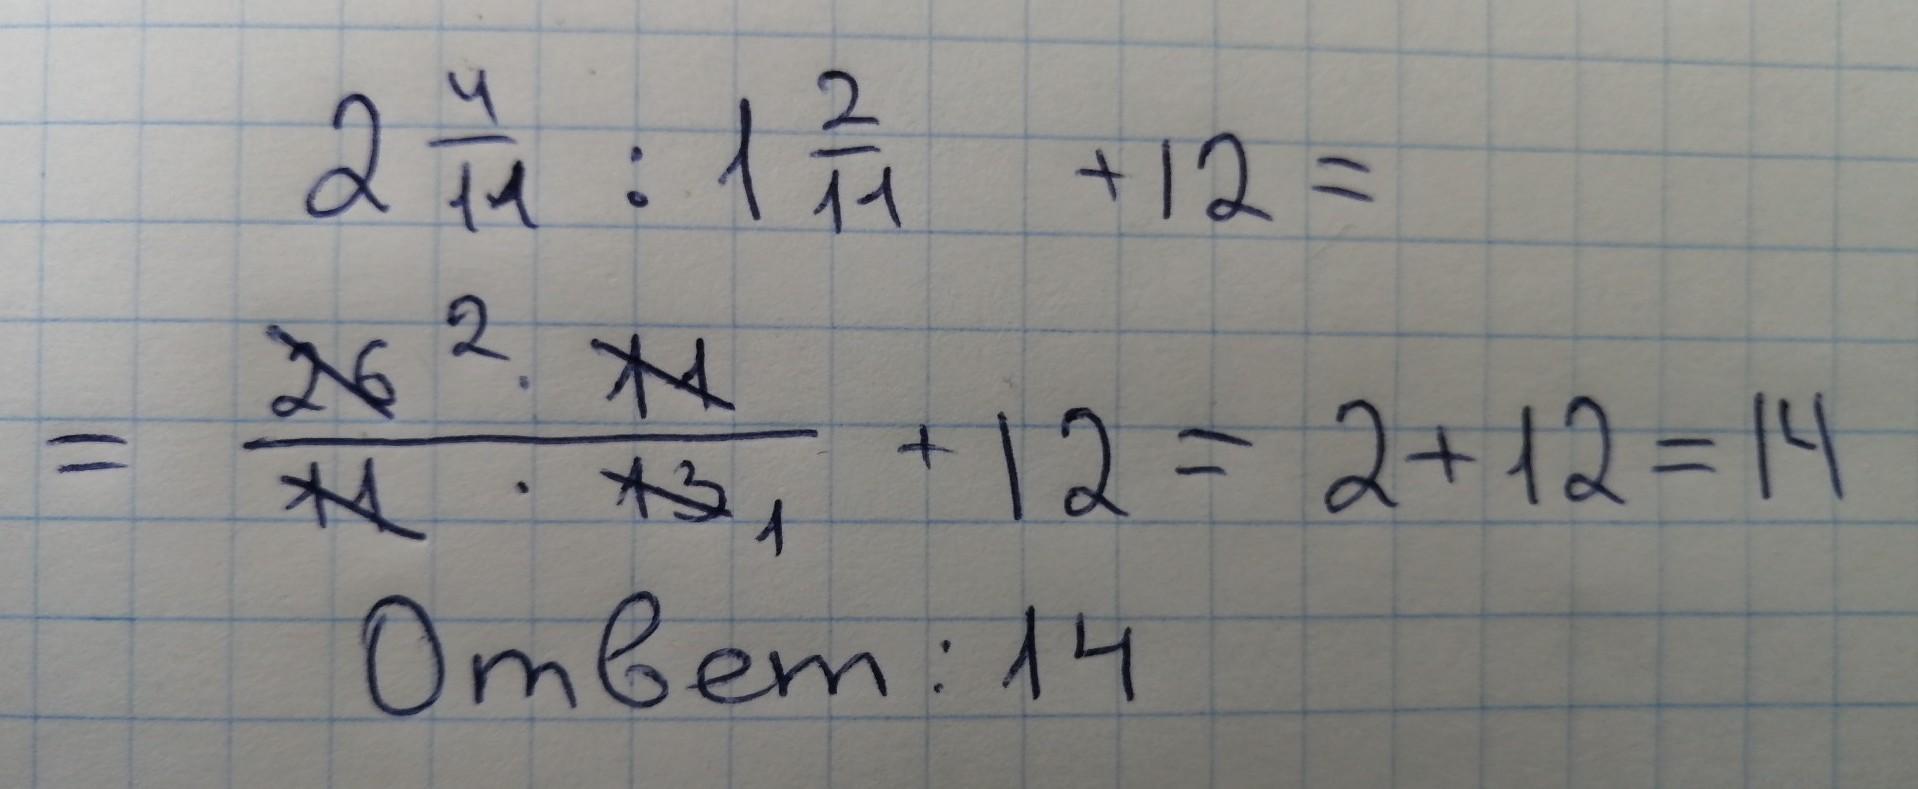 2 4/11 : 1 2/11 + 12 =
= 26 2 · 11 / 11 · 13 1 + 12 = 2 + 12 = 14
Ответ: 14